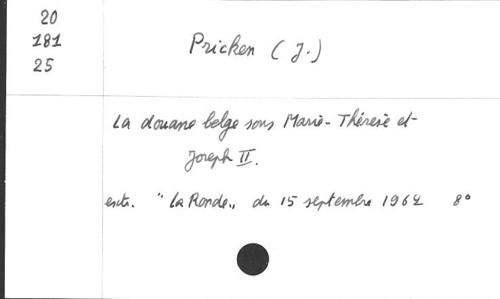 20
181
25
Pricken (J.)
La douane belge sous Marie-Thérèse et
Joseph II.
extr. "La Ronde" du 15 septembre 1962 8°